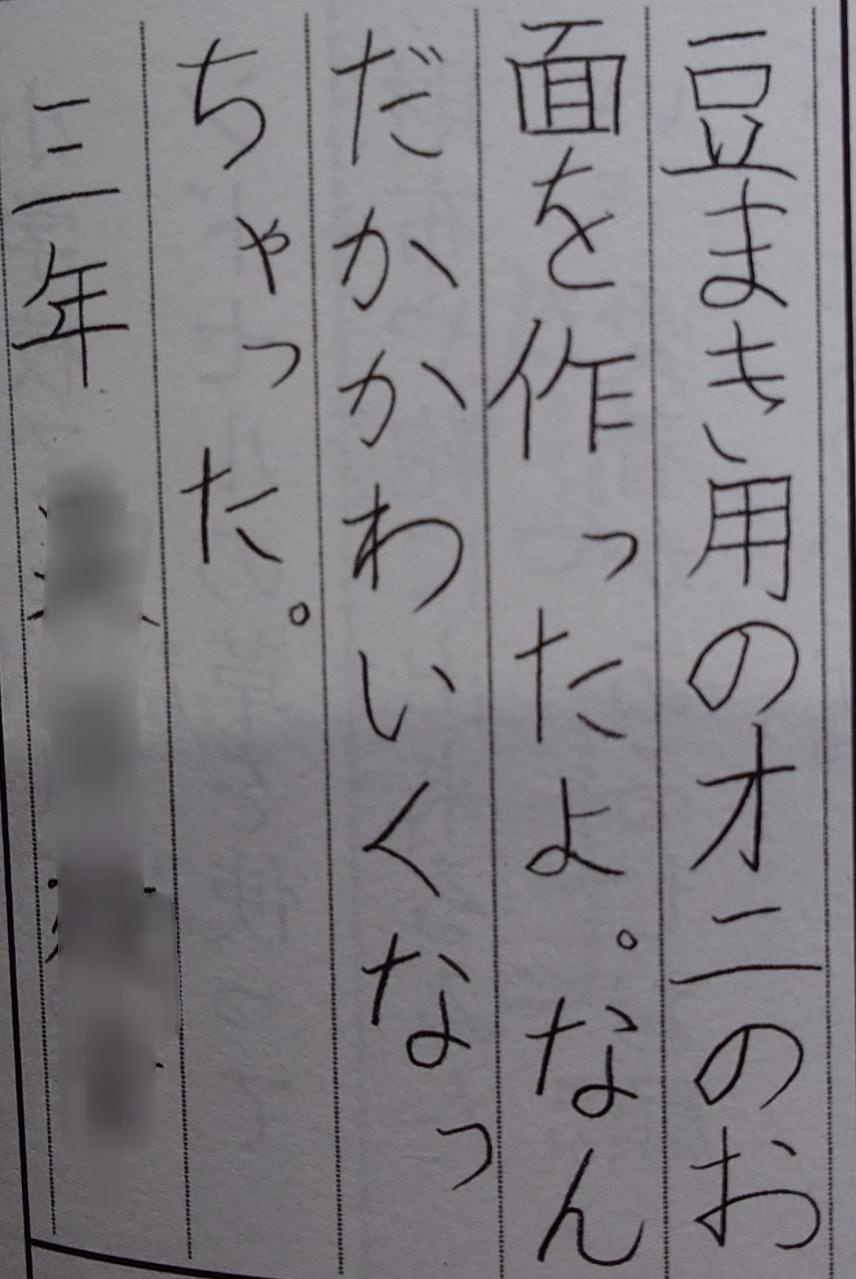 豆まき用のオニのお
面を作ったよ。なん
だかかわいくなっ
ちゃった。
三年